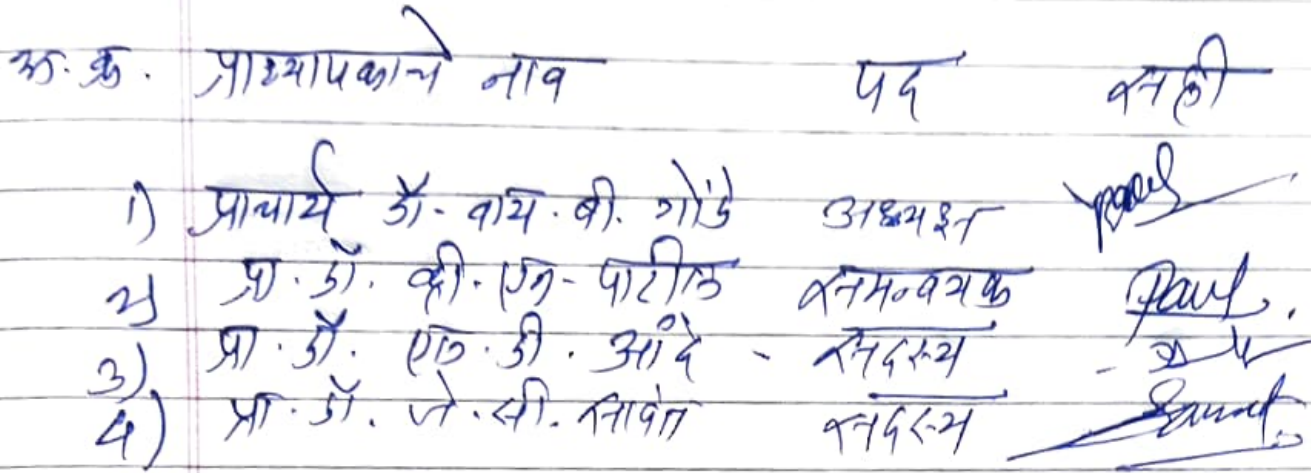 अ. क्र. प्राध्यापकाचे नाव पद सही
1) प्राचार्य डॉ. वाय. बी. गोंडे अध्यक्ष
2) प्रा. डॉ. व्ही. एन. पाटील समन्वयक
3) प्रा. डॉ. एल. डी. आंदे - सदस्य -
4) प्रा. डॉ. जे. सी. सावंत सदस्य